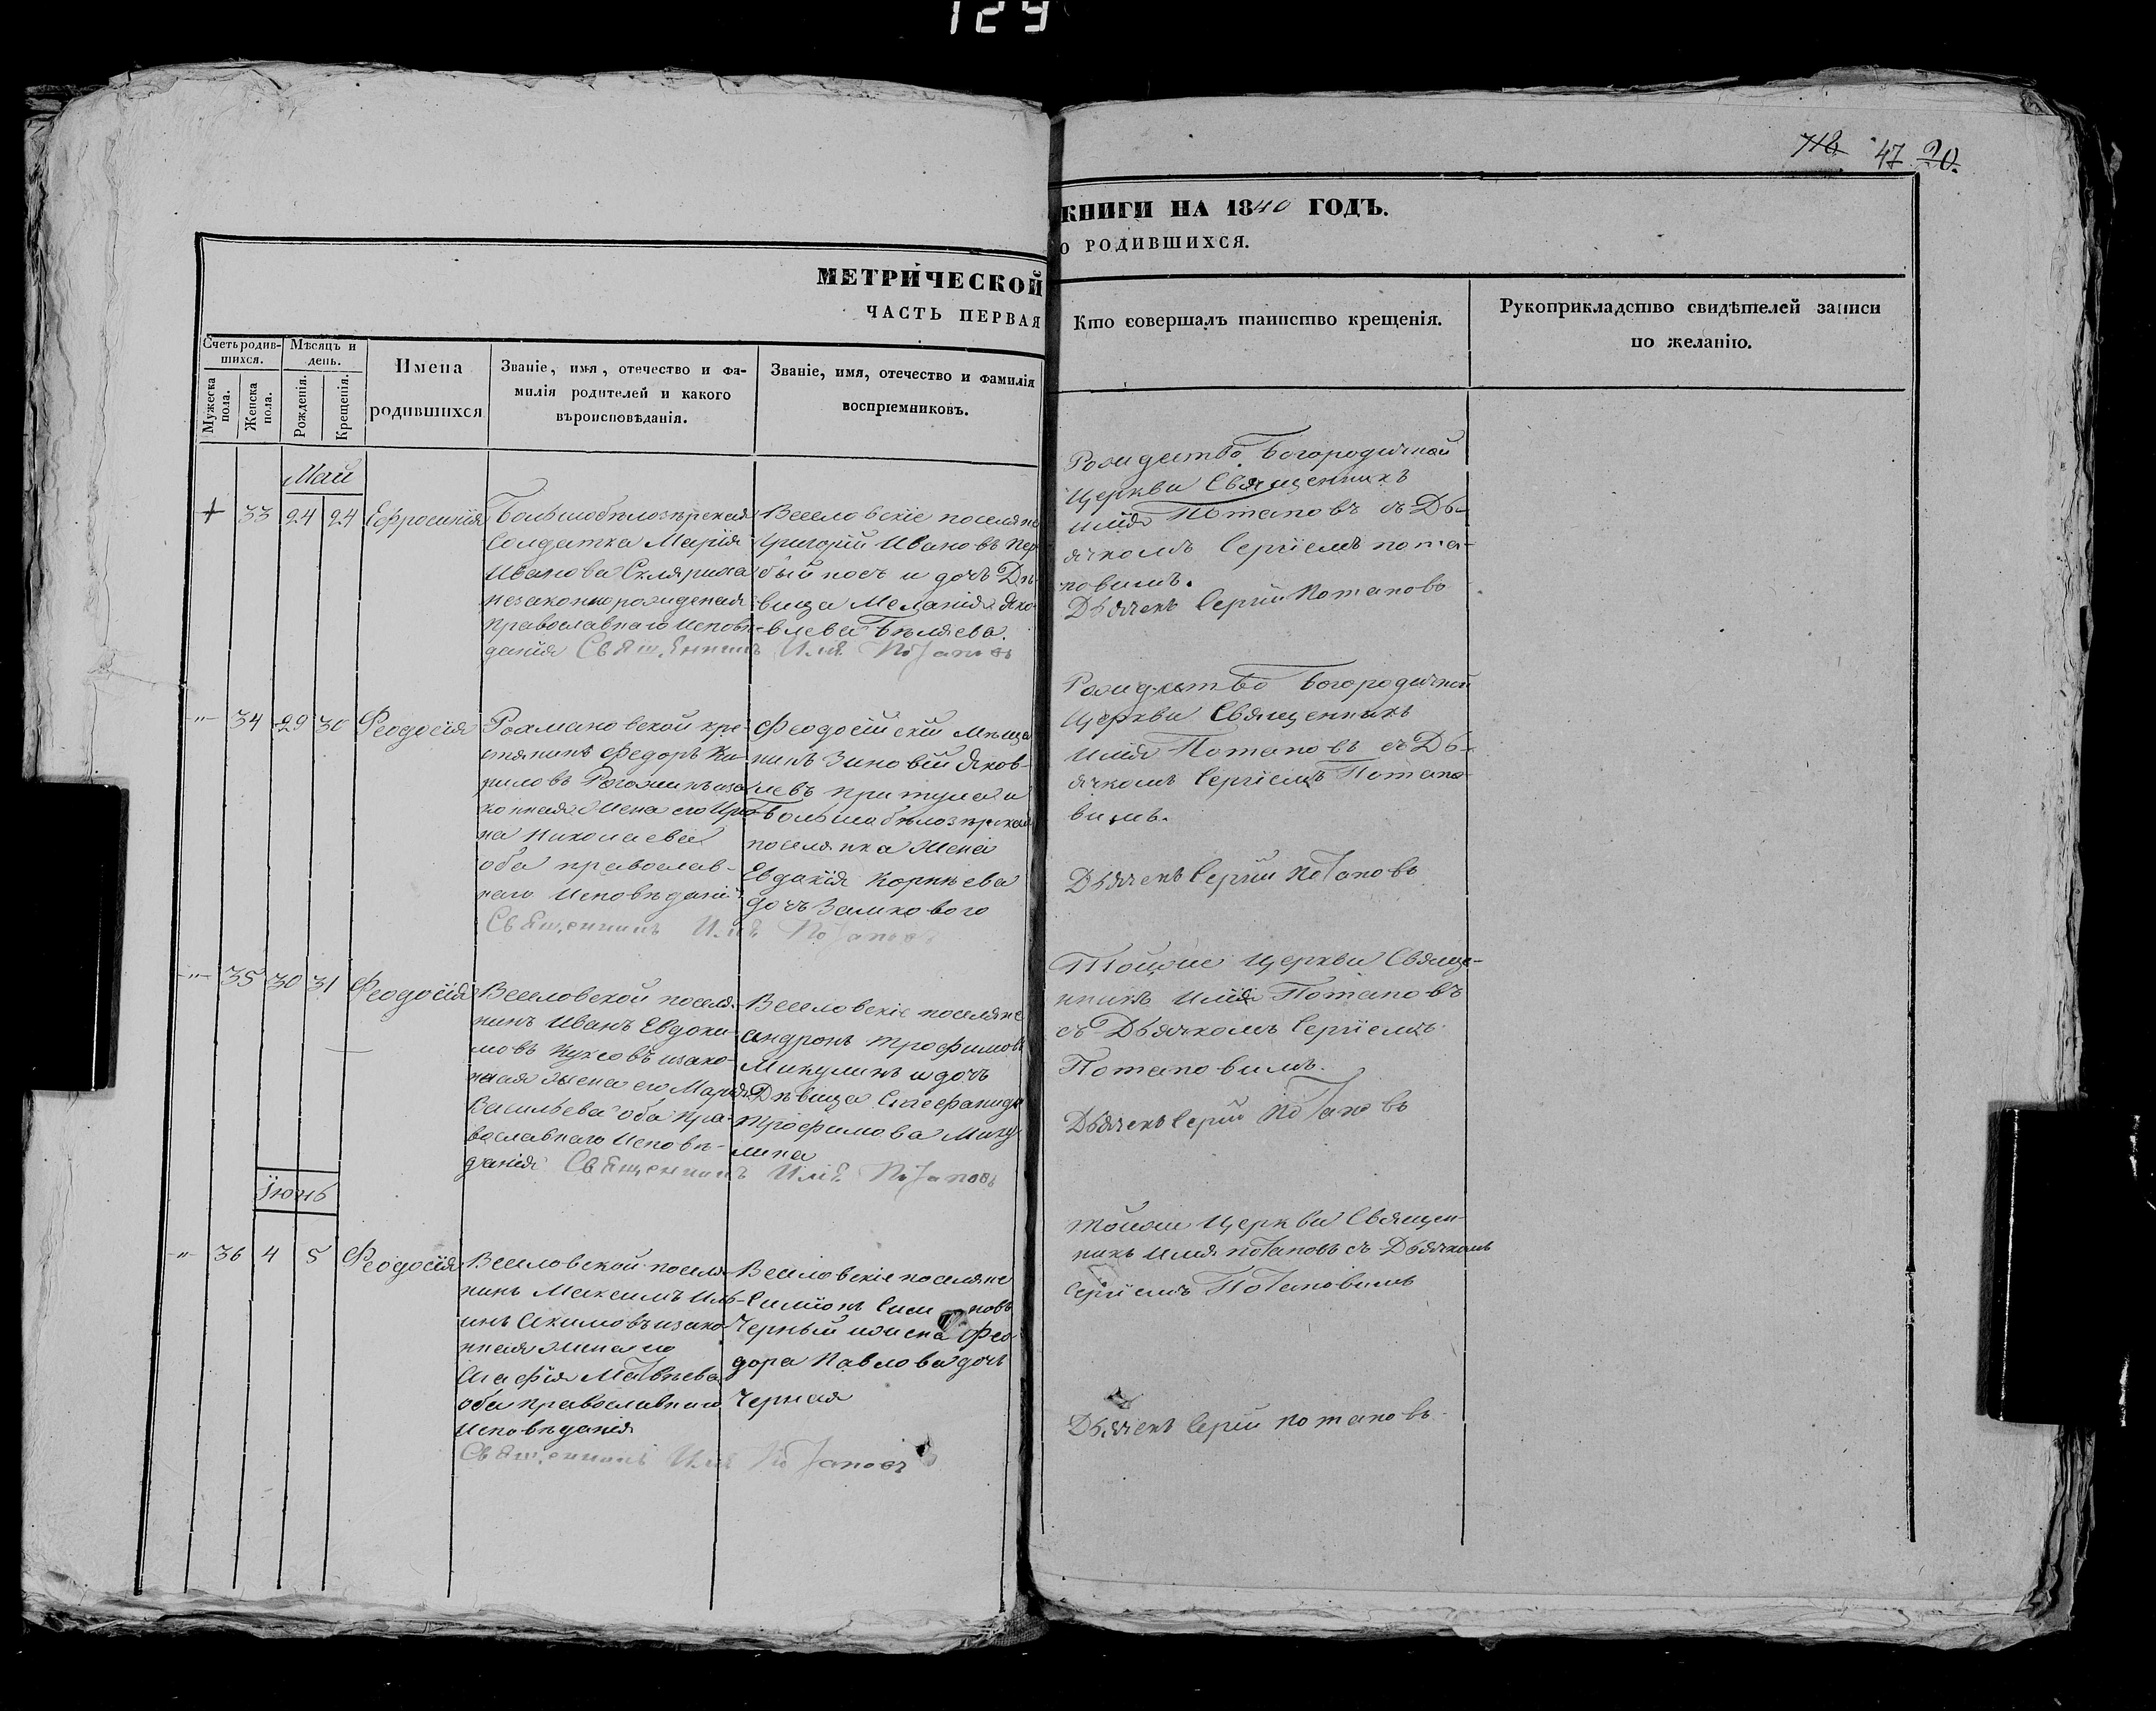 129
718 47 20.
МЕТРИЧЕСКОЙ
ЧАСТЬ ПЕРВАЯ
КНИГИ НА 1840 ГОДЪ.
О РОДИВШИХСЯ.
Счетъ родив-
шихся.
Мужеска
пола.
Женска
пола.
Мѣсяцъ и
день.
Рожденія.
Крещенія.
Имена
родившихся
Званіе, имя, отечество и фа-
милія родителей и какого
вѣроисповѣданія.
Званіе, имя, отечество и фамилія
воспріемниковъ.
Кто совершалъ таинство крещенія.
Рукоприкладство свидѣтелей записи
по желанію.
Май
33 24 24 Ефросинія
Большобѣлозѣрская
Солдатка Марія
Иванова Скляриха
незаконнорожденая
православнаго исповѣ-
данія Священникъ Илія Потаповъ
Веселовскіе поселяне
Григорій Ивановъ
посъ и дочь Дѣ-
вица Меланія Яко-
влева Бѣляева.
Рождество Богородичной
Церкви Священникъ
Илія Потаповъ съ Дь-
ячкомъ Сергіемъ Пота-
повимъ.
Дьячекъ Сергій Потаповъ
34 29 30 Феодосія
Рохмановской кре-
стянинъ Федоръ Ки-
риловъ изако
ная жена его Ири-
на Николаева
оба православ-
наго исповѣданій
Священникъ Илія Потаповъ
Феодосійскій мѣща
нинъ Зиновій Яков-
левъ Притула и
Большобѣлозѣрская
поселянка жена
Евдокія Корнѣева
дочъ Замкового
Рождество Богородичной
Церкви Священникъ
Илія Потаповъ съ Дь-
ячкомъ Сергіемъ Потапо-
вимъ.
Дьячекъ Сергій Потаповъ
35 30 31 Феодосія
Веселовской поселя-
нинъ Иванъ Евдоки-
мовъ Куксовъ изако-
ная жена его Марія
Васильева оба пра-
вославнаго исповѣ-
данія Священникъ Илія Потаповъ
Веселовскіе поселяне
Андронъ Трофимовъ
Микулинъ и дочъ
Дѣвица Стефанида
Трофимова Мику-
лина
Тойже Церкви Свяще-
нникъ Илія Потаповъ
съ Дьячкомъ Сергіемъ
Потаповимъ.
Дьячекъ Сергій Потаповъ
Іюнь
36 4 5 Феодосія
Веселовской поселя-
нинъ Максимъ Иль-
инъ Акимовъ изако-
нная жена его
Агафія Матвѣева
оба православнаго
исповѣданія
Священникъ Илія Потаповъ
Веселовскіе поселяне
Симіонъ
Черный и жена Фео-
дора Павлова дочь
Черная
Тойже Церкви Священ-
никъ Илія Потаповъ съ Дьячкомъ
Сергіемъ Потаповимъ
Дьячекъ Сергій Потаповъ